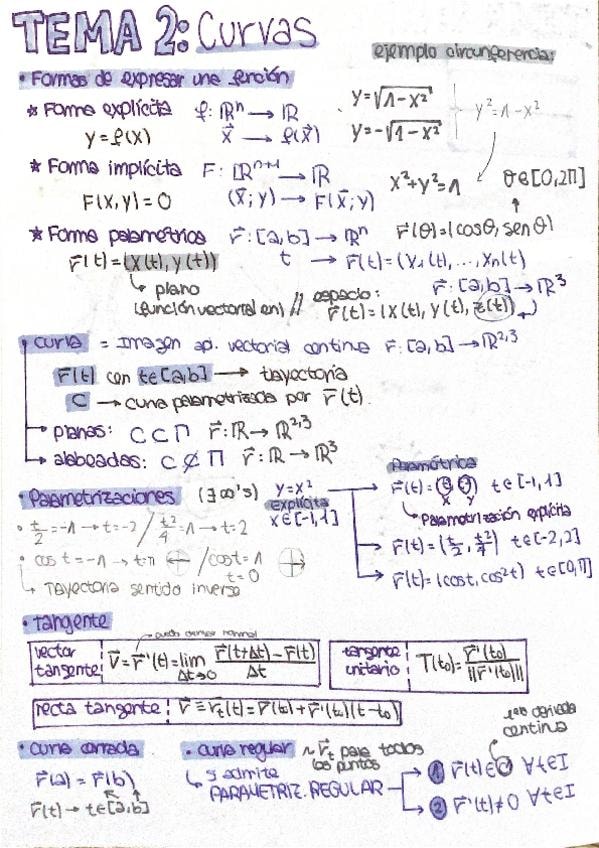 TEMA 2: Curvas
ejemplo circunferencia:
• Formas de expresar una función
★ Forma explícita f: ℝⁿ → ℝ
y = f(x) x⃗ → f(x⃗)
y = √(1-x²)
y = -√(1-x²)
y² = 1-x²
★ Forma implícita F: ℝⁿ⁺¹ → ℝ
F(x,y) = 0 (x⃗;y) → F(x⃗;y)
x²+y²=1 θ∈[0,2π]
★ Forma paramétrica r⃗: [a,b] → ℝⁿ r⃗(θ)=(cosθ, senθ)
r⃗(t)=(x(t), y(t)) t → r⃗(t)=(x₁(t), ..., xₙ(t))
↳ plano
(función vectorial en) // espacio: r⃗: [a,b] → ℝ³
r⃗(t)=(x(t), y(t), z(t))
curva = Imagen ap. vectorial continua r⃗: [a,b] → ℝ²,³
r⃗(t) con t∈[a,b] → trayectoria
C → curva parametrizada por r⃗(t).
→ planas: C ⊂ Π r⃗: ℝ → ℝ²,³
→ alabeadas: C ⊄ Π r⃗: ℝ → ℝ³
• Parametrizaciones (∃ ∞'s) y=x²
explícita
x∈[-1,1]
Paramétrica
r⃗(t)=(t, t²) t∈[-1,1]
x y
↳ Parametrización explícita
• t/2 = -1 → t=-2 / t²/4 = 1 → t=2
→ r⃗(t)=(t/2, t²/4) t∈[-2,2]
• cos t = -1 → t=π / cos t = 1
t=0
→ r⃗(t)=(cos t, cos² t) t∈[0,π]
↳ Trayectoria sentido inverso
• tangente
vector tangente: v⃗ = r⃗'(t) = lim Δt→0 (r⃗(t+Δt) - r⃗(t))/Δt
tangente unitario T(t₀) = r⃗'(t₀)/||r⃗'(t₀)||
recta tangente: r⃗ ≡ r⃗t(t) = r⃗(t₀) + r⃗'(t₀)(t-t₀)
• curva cerrada
r⃗(a) = r⃗(b)
r⃗(t) → t∈[a,b]
• curva regular ~ r⃗t para todos los puntos
↳ si admite
PARAMETRIZ. REGULAR
1era derivada continua
→ ① r⃗(t)∈C' ∀t∈I
→ ② r⃗'(t)≠0 ∀t∈I